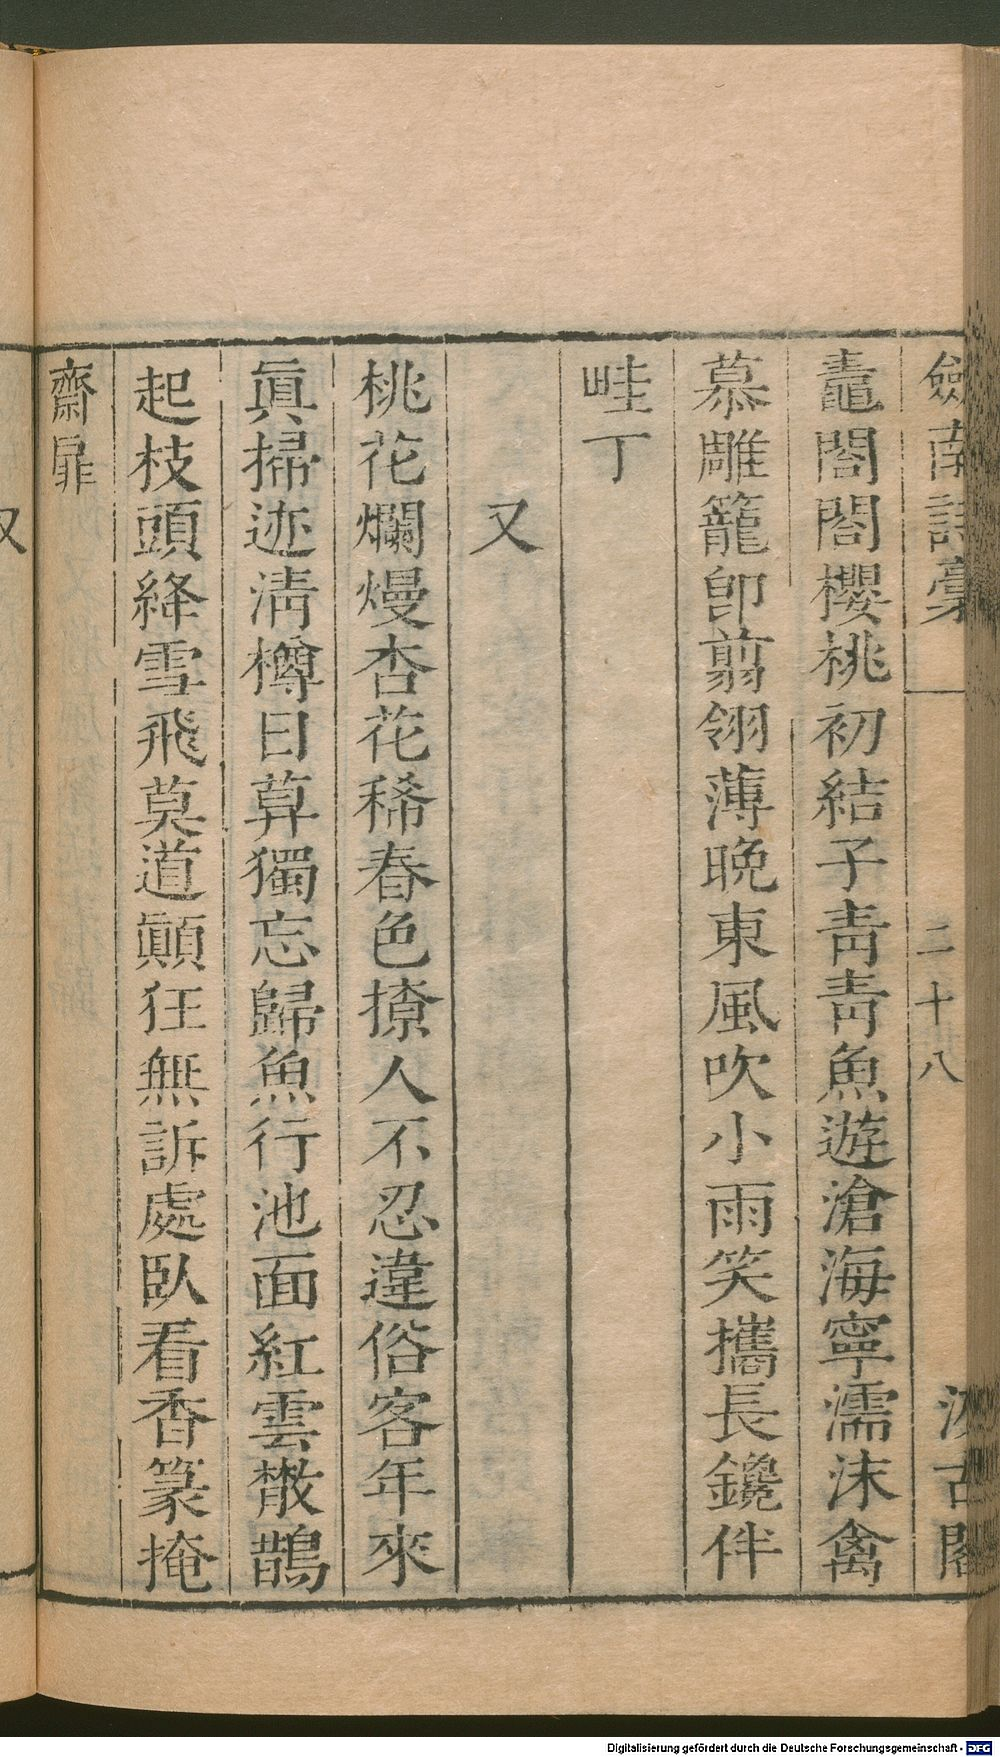 劍南詩稾
二十八
汲古閣
鼃閤閤櫻桃初結子靑靑魚遊滄海寧濡沫禽
慕雕籠卽翦翎薄晚東風吹小雨笑攜長鑱伴
畦丁
又
桃花爛熳杏花稀春色撩人不忍違俗客年來
眞掃迹淸樽日算獨忘歸魚行池面紅雲散鵲
起枝頭絳雪飛莫道顚狂無訴處臥看香篆掩
齋扉
又
Digitalisierung gefördert durch die Deutsche Forschungsgemeinschaft - DFG